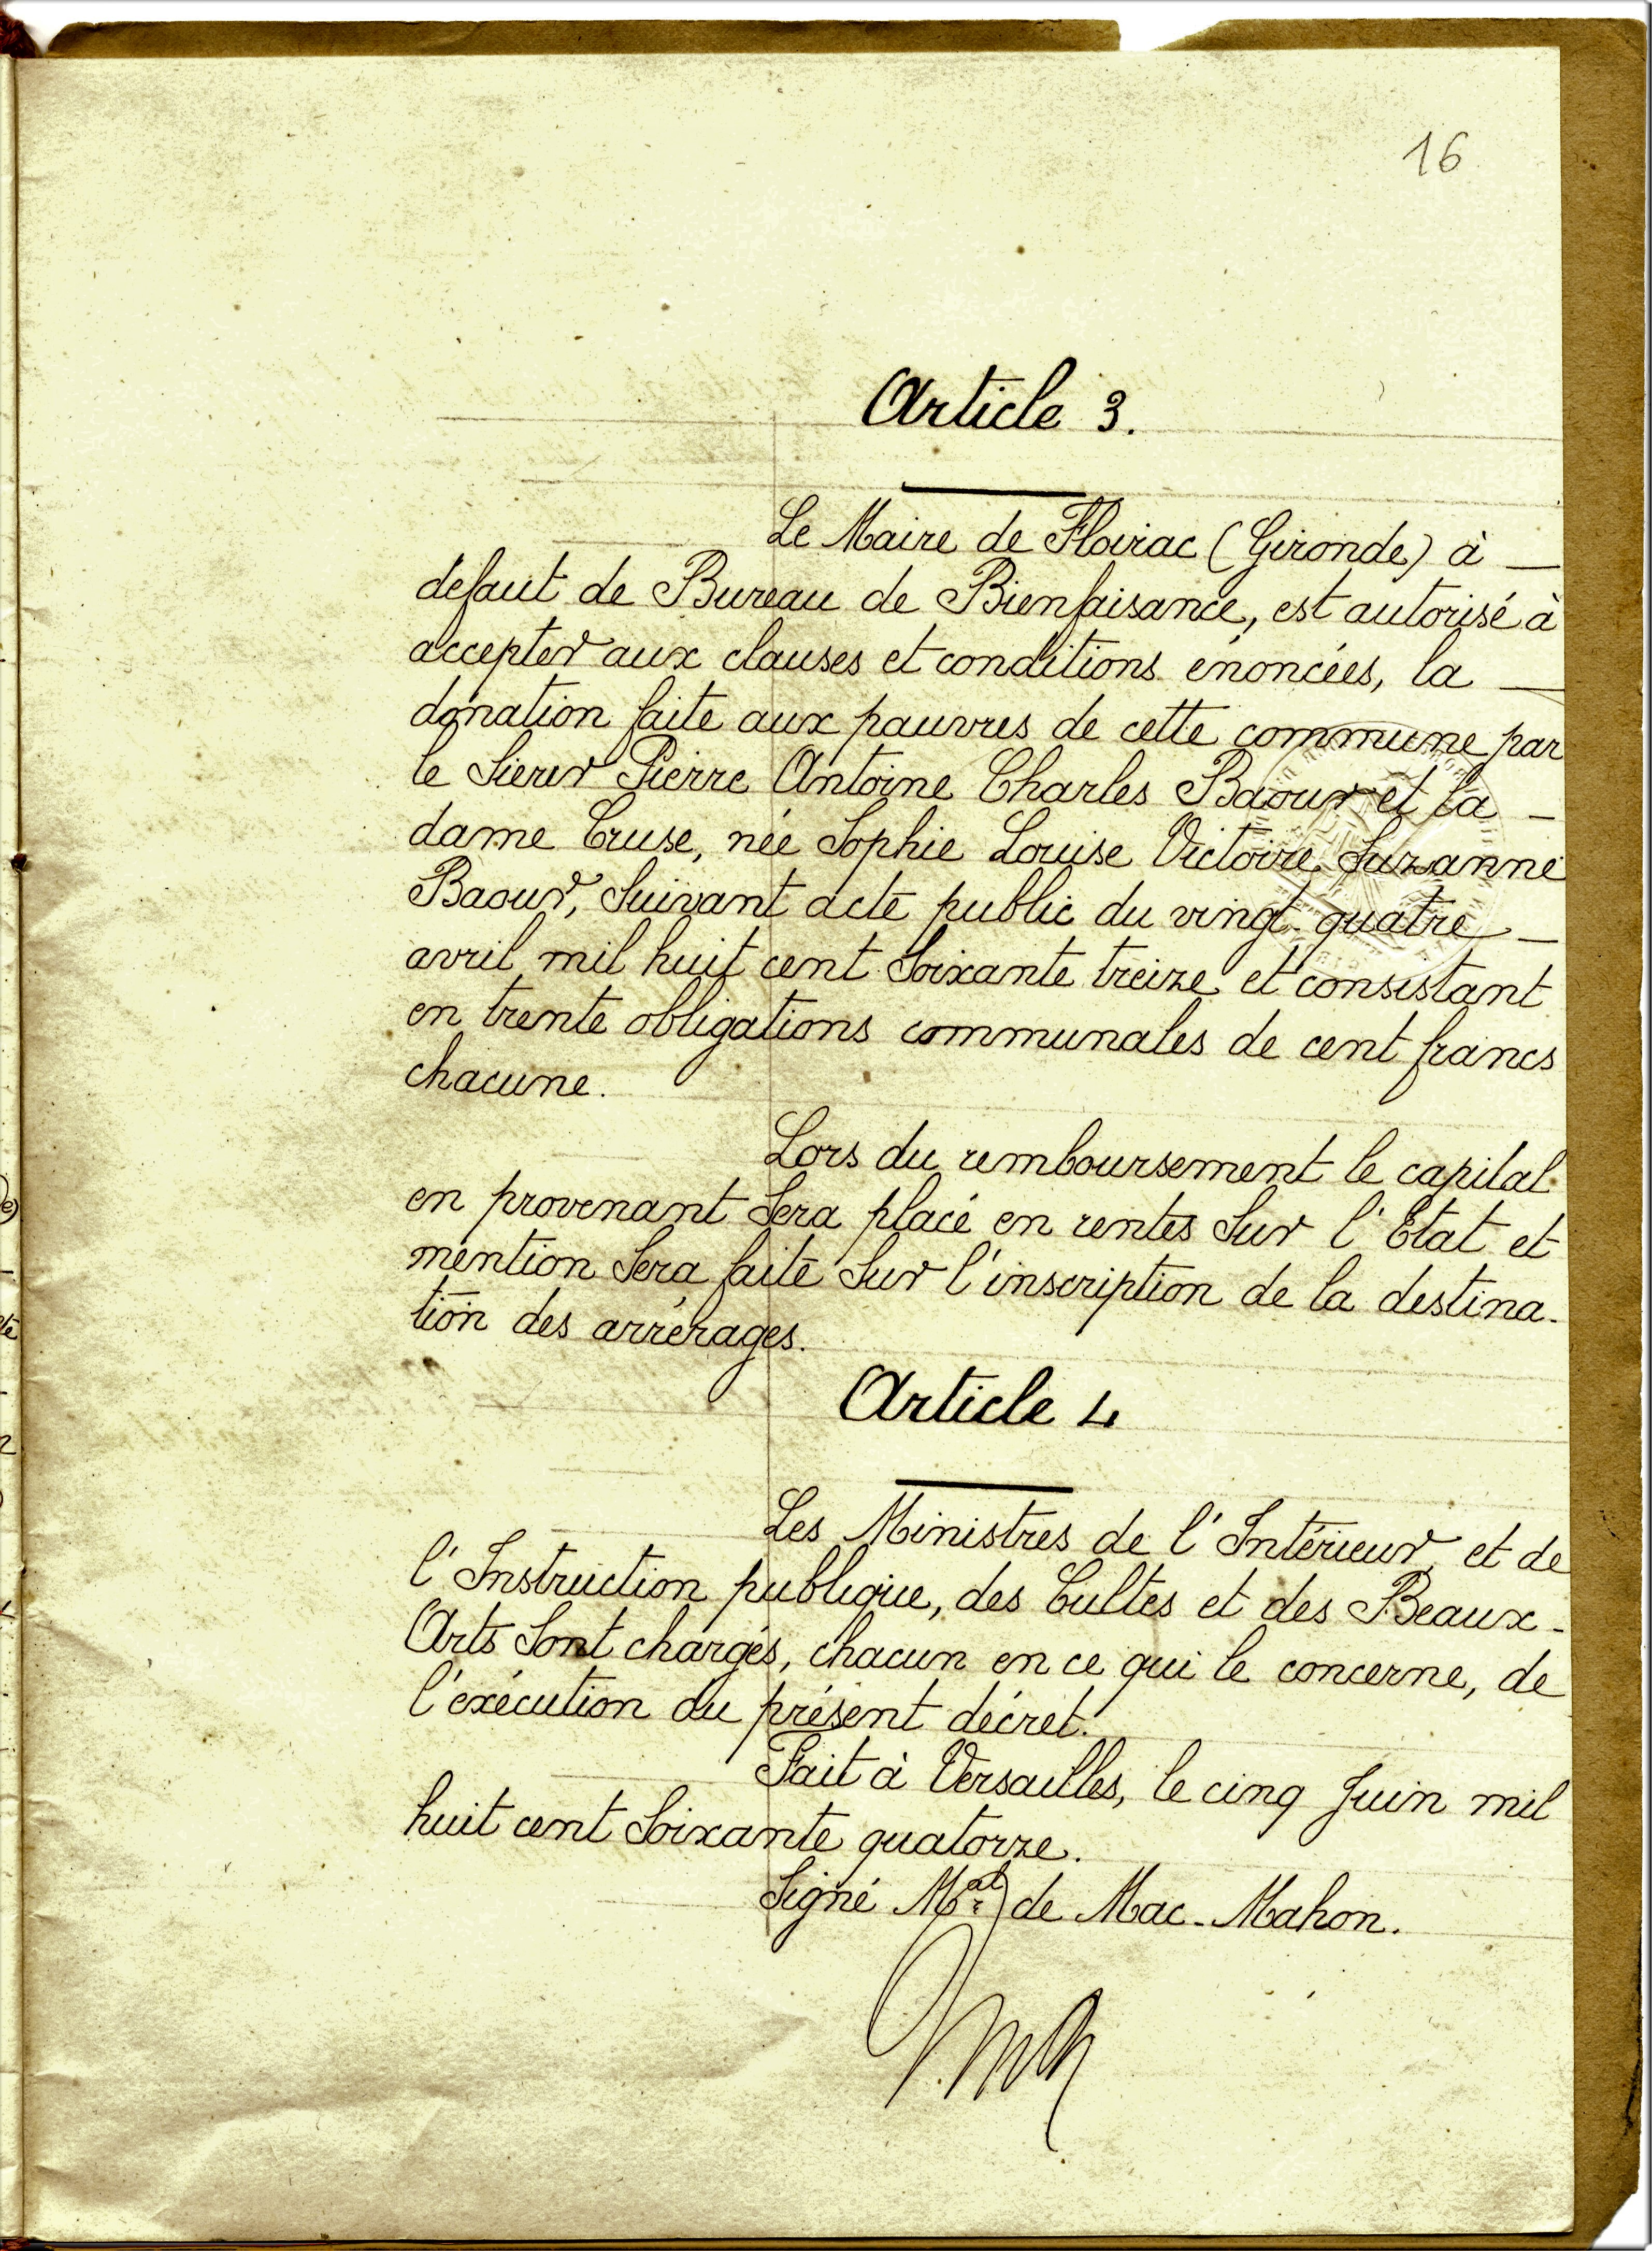 16
Article 3.
Le Maire de Floirac (Gironde) à —
defaut de Bureau de Bienfaisance, est autorisé à
accepter aux clauses et conditions énoncées, la —
donation faite aux pauvres de cette commune par
le Sieur Pierre Antoine Charles Baour et la —
dame Cruse, née Sophie Louise Victoire Suzanne
Baour, Suivant acte public du vingt-quatre —
avril mil huit cent Soixante treize et consistant
en trente obligations communales de cent francs
chacune.
Lors du remboursement le capital
en provenant Sera placé en rentes Sur l'Etat et
mention Sera faite Sur l'inscription de la destina-
tion des arrérages.
Article 4
Les Ministres de l'Intérieur et de
l'Instruction publique, des Cultes et des Beaux-
Arts Sont chargés, chacun en ce qui le concerne, de
l'exécution du présent décret.
Fait à Versailles, le cinq Juin mil
huit cent Soixante quatorze.
Signé Mal de Mac-Mahon.